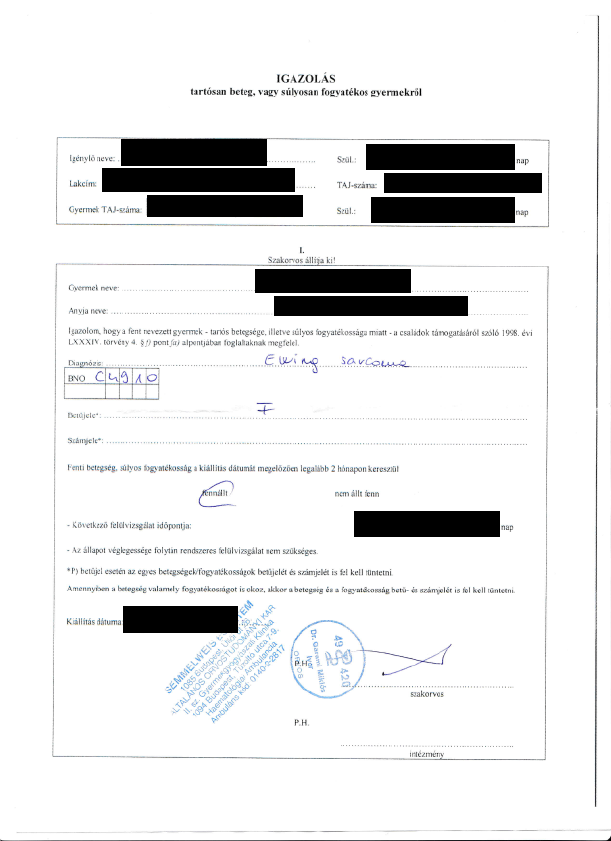 IGAZOLÁS
tartósan beteg, vagy súlyosan fogyatékos gyermekről
Igénylő neve: Szül.: nap
Lakcím: TAJ-száma:
Gyermek TAJ-száma: Szül.: nap
I.
Szakorvos állítja ki!
Gyermek neve:
Anyja neve:
Igazolom, hogy a fent nevezett gyermek - tartós betegsége, illetve súlyos fogyatékossága miatt - a családok támogatásáról szóló 1998. évi
LXXXIV. törvény 4. § f) pont fa) alpontjában foglaltaknak megfelel.
Diagnózis: Ewing sarcoma
BNO C4910
Betűjele*: F
Számjele*:
Fenti betegség, súlyos fogyatékosság a kiállítás dátumát megelőzően legalább 2 hónapon keresztül
fennállt nem állt fenn
- Következő felülvizsgálat időpontja: nap
- Az állapot véglegessége folytán rendszeres felülvizsgálat nem szükséges.
*P) betűjel esetén az egyes betegségek/fogyatékosságok betűjelét és számjelét is fel kell tüntetni.
Amennyiben a betegség valamely fogyatékosságot is okoz, akkor a betegség és a fogyatékosság betű- és számjelét is fel kell tüntetni.
Kiállítás dátuma
SEMMELWEIS EGYETEM
1085 Budapest, Üllői út 26.
ÁLTALÁNOS ORVOSTUDOMÁNYI KAR
II. sz. Gyermekgyógyászati Klinika
1094 Budapest, Tűzoltó utca 7-9.
Haematológiai Ambulancia
Ambuláns kód: 0140-2-2817
P.H.
Dr. Garami Miklós
orvos
szakorvos
P.H.
intézmény